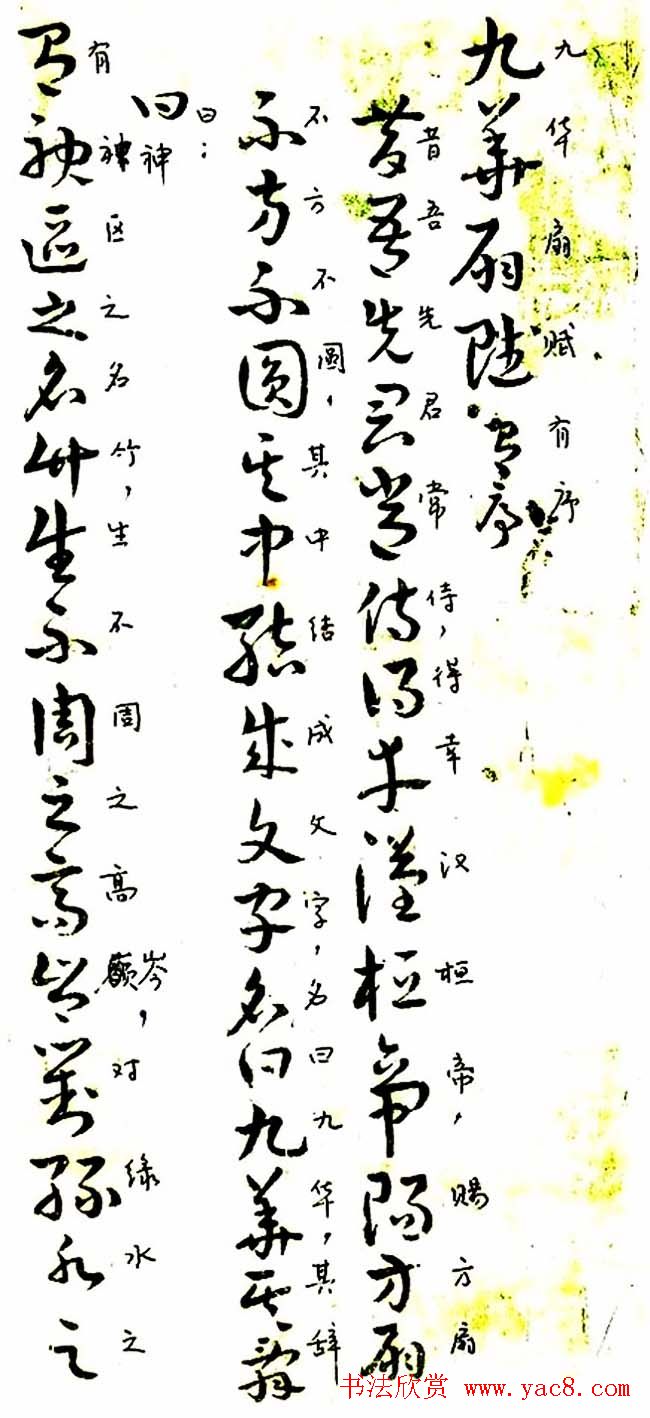 九華扇賦有序
九华扇赋有序
昔吾先君常侍得幸漢桓帝賜方扇
昔吾先君常侍，得幸汉桓帝，赐方扇
不方不圓其中結成文字名曰九華其辭
不方不圆，其中结成文字，名曰九华，其辞
曰
曰：
神
有神區之名竹生不周之高岑對綠水之
有神区之名竹，生不周之高岑，对绿水之
书法欣赏 www.yac8.com